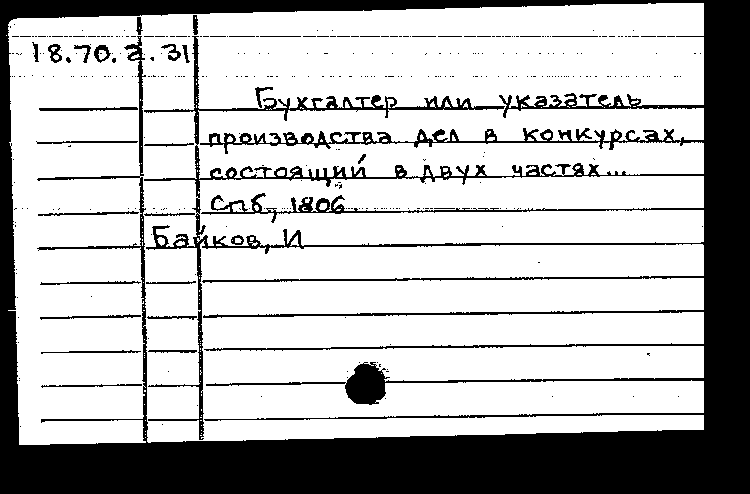 18.70.2.31
Бухгалтер или указатель
производства дел в конкурсах,
состоящий в двух частях...
Спб, 1806.
Байков, И